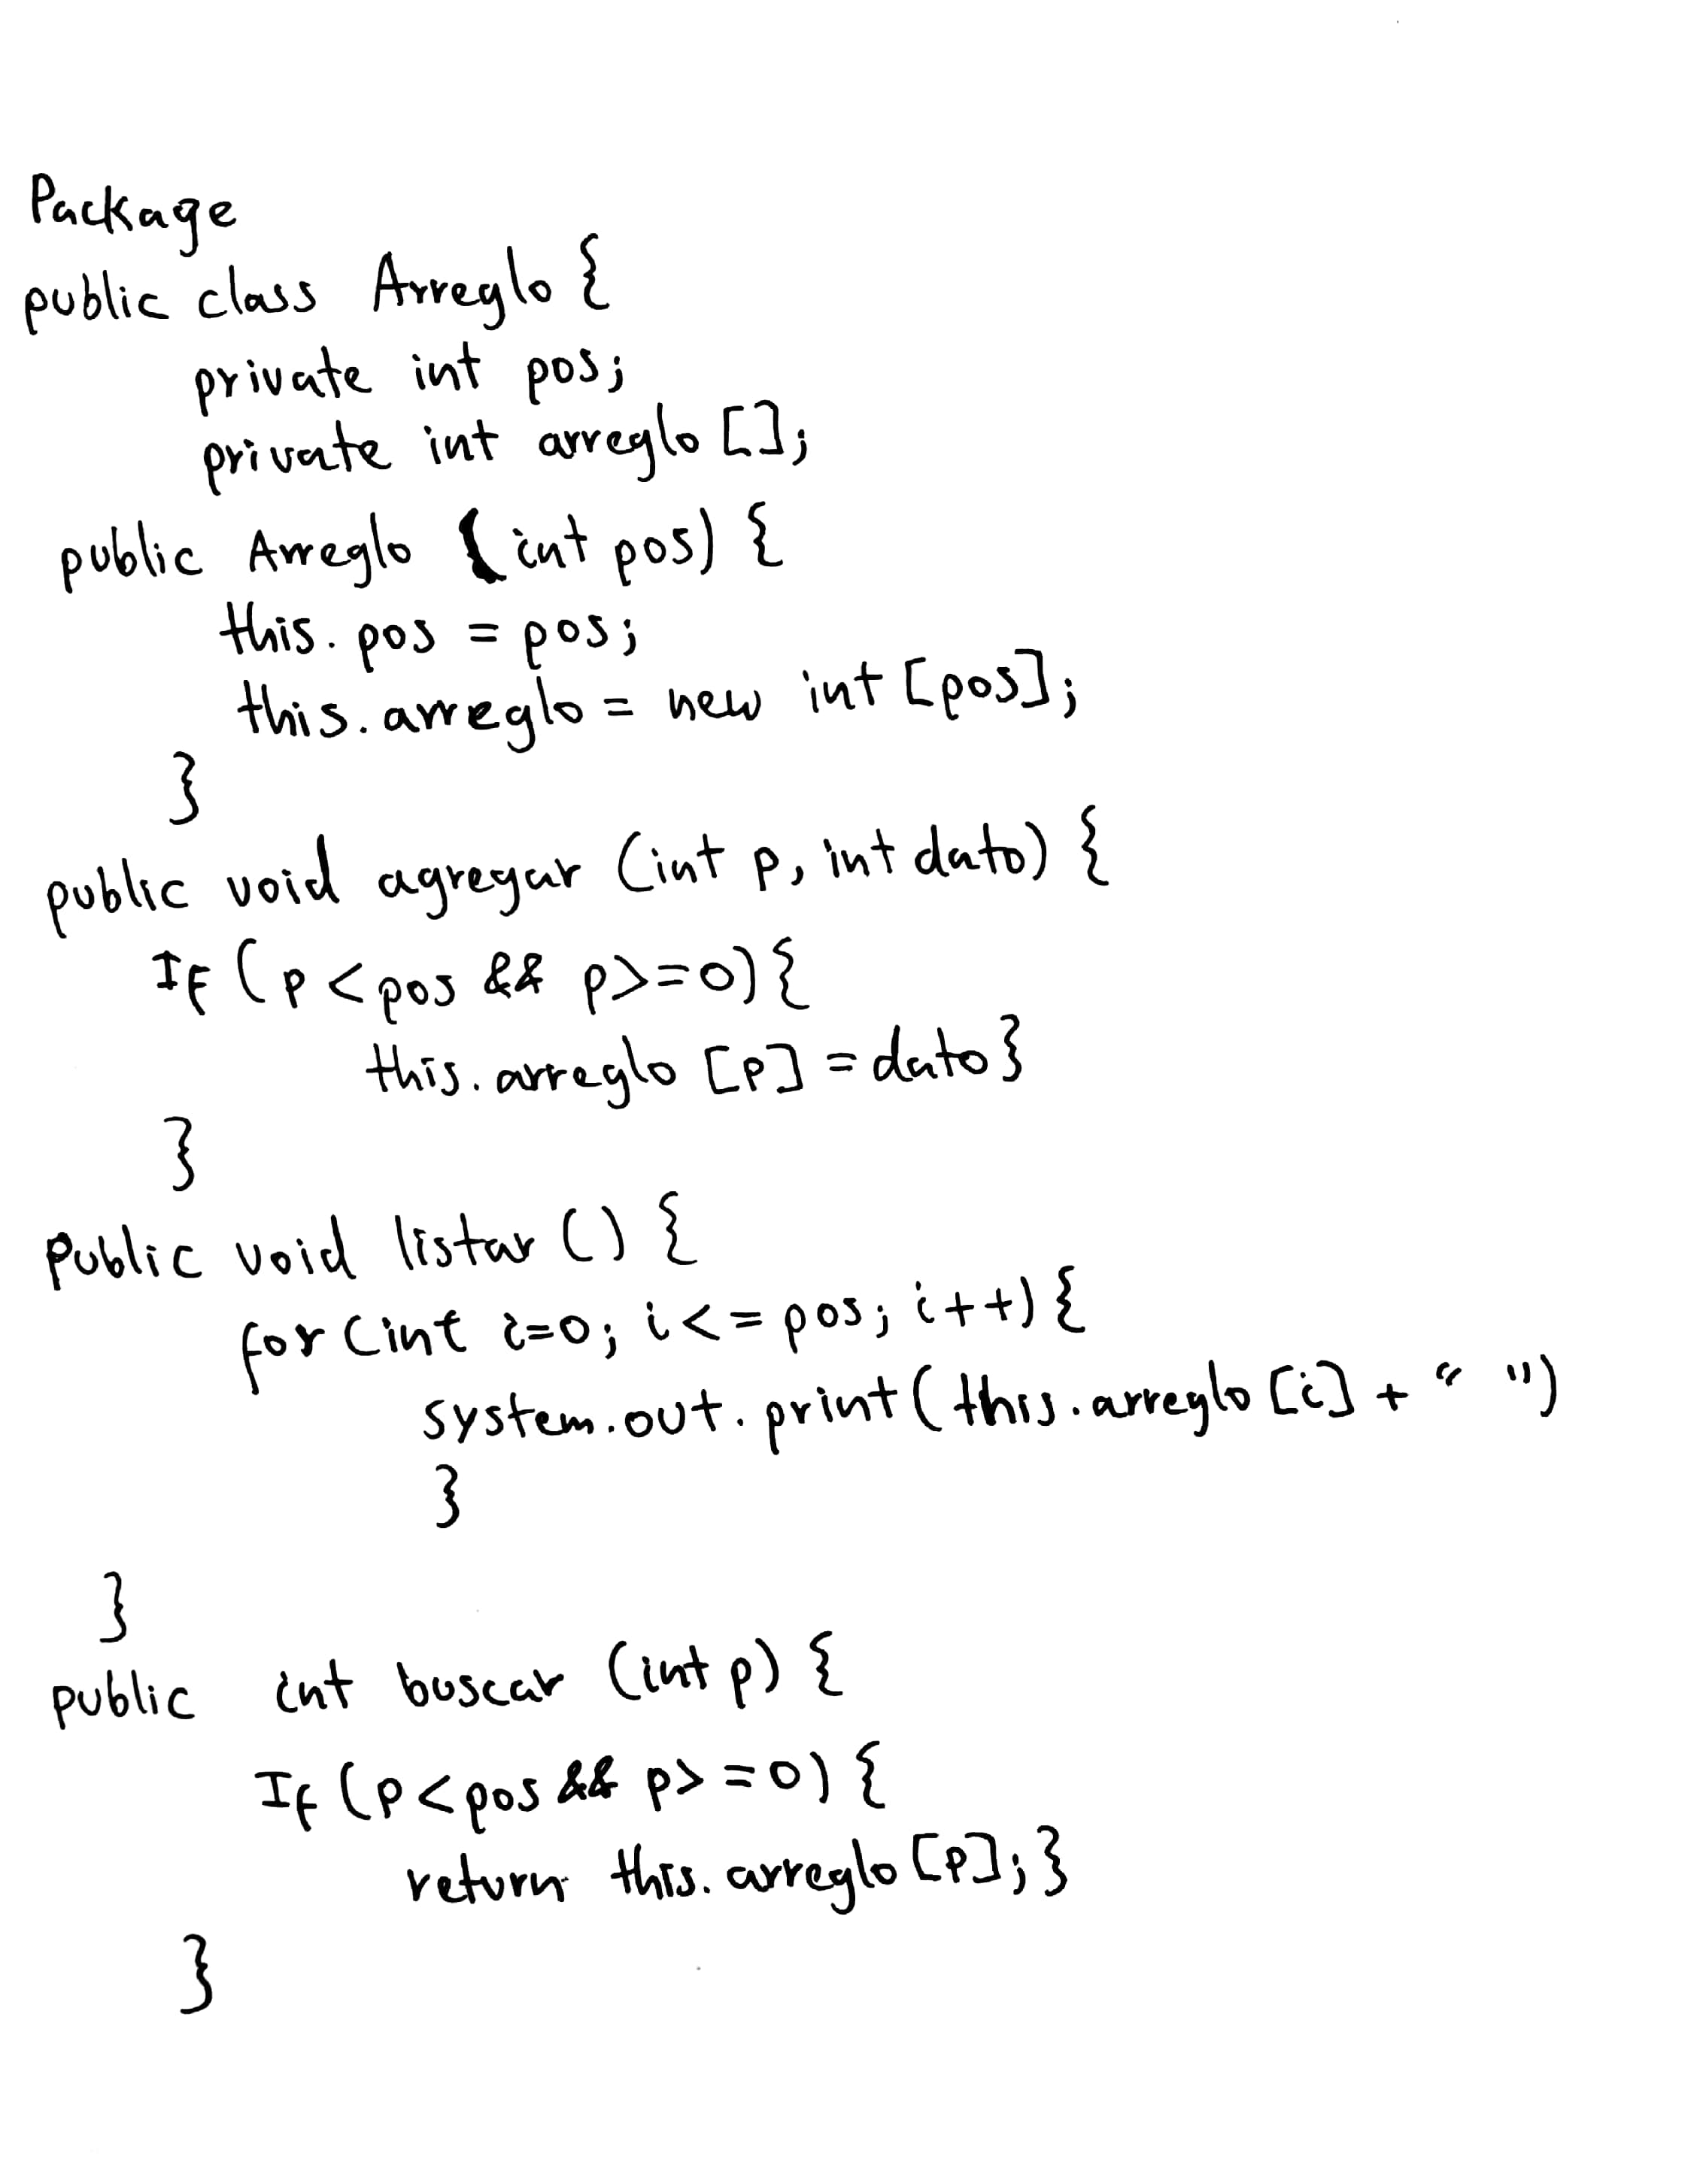 Package
public class Arreglo {
private int pos;
private int arreglo [];
public Arreglo (int pos) {
this.pos = pos;
this.arreglo = new int [pos];
}
public void agregar (int p, int dato) {
If (p < pos && p >= 0) {
this.arreglo [p] = dato}
}
public void listar () {
for (int i=0; i <= pos; i++) {
system.out.print( this.arreglo [i] + " ")
}
}
public int buscar (int p) {
If (p < pos && p >= 0) {
return this.arreglo [p]; }
}